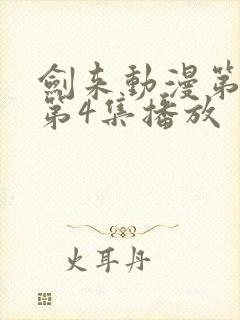 劍来動漫第
第4集播放
火耳丹